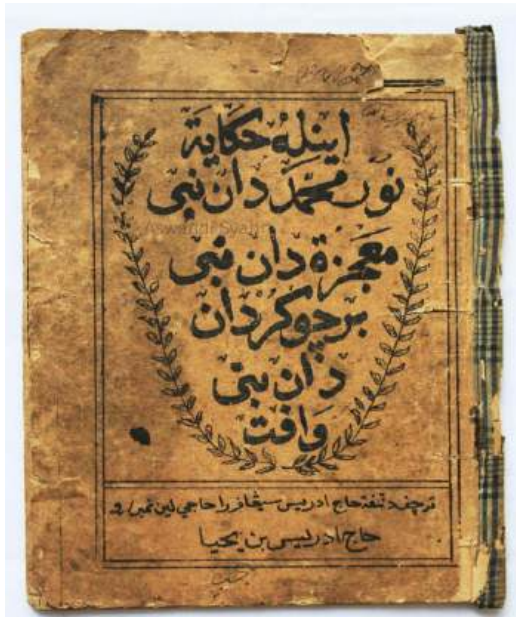 اينله حكاية
نور محمد دان نبى
Aswandi Syahri
معجزة دان نبى
برچوكر دان
دان نبى
وافت
ترچف دتمفة حاج ادريس سيڠافورا حاجي لين نمبر 2
حاج ادريس بن يحيا